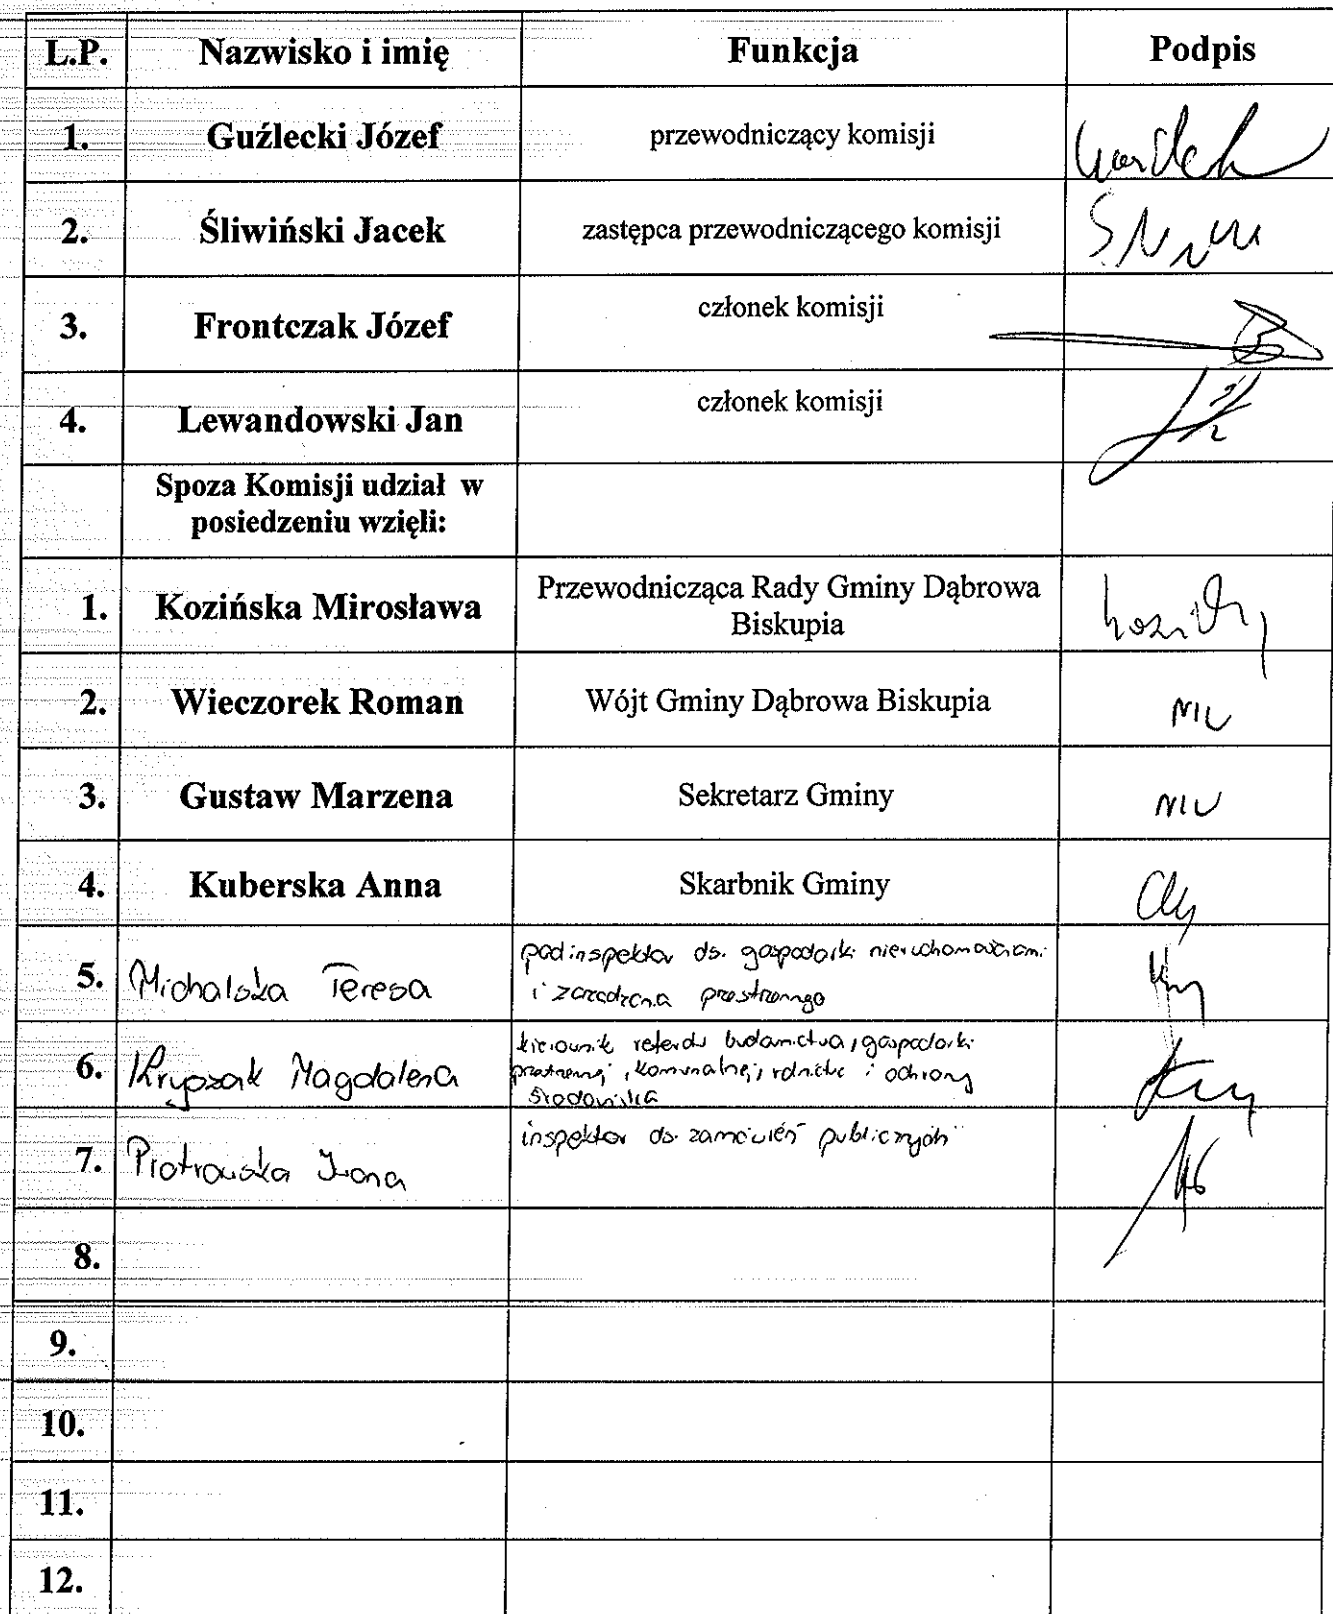 L.P. Nazwisko i imię Funkcja Podpis
1. Guźlecki Józef przewodniczący komisji
2. Śliwiński Jacek zastępca przewodniczącego komisji
3. Frontczak Józef członek komisji
4. Lewandowski Jan członek komisji
Spoza Komisji udział w
posiedzeniu wzięli:
1. Kozińska Mirosława Przewodnicząca Rady Gminy Dąbrowa
Biskupia
2. Wieczorek Roman Wójt Gminy Dąbrowa Biskupia
3. Gustaw Marzena Sekretarz Gminy
4. Kuberska Anna Skarbnik Gminy
5. Michalska Teresa podinspektor ds. gospodarki nieruchomościami
i zarządzania przestrzennego
6. Krypzak Magdalena kierownik referatu budownictwa, gospodarki
przestrzennej, komunalnej, rolnictwa i ochrony
środowiska
7. Piotrowska Iwona inspektor ds. zamówień publicznych
8.
9.
10.
11.
12.